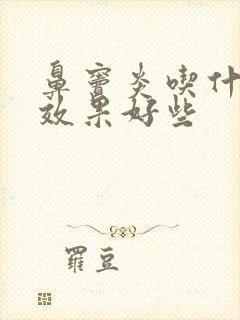 鼻窦炎喫什
效果好些
羅豆